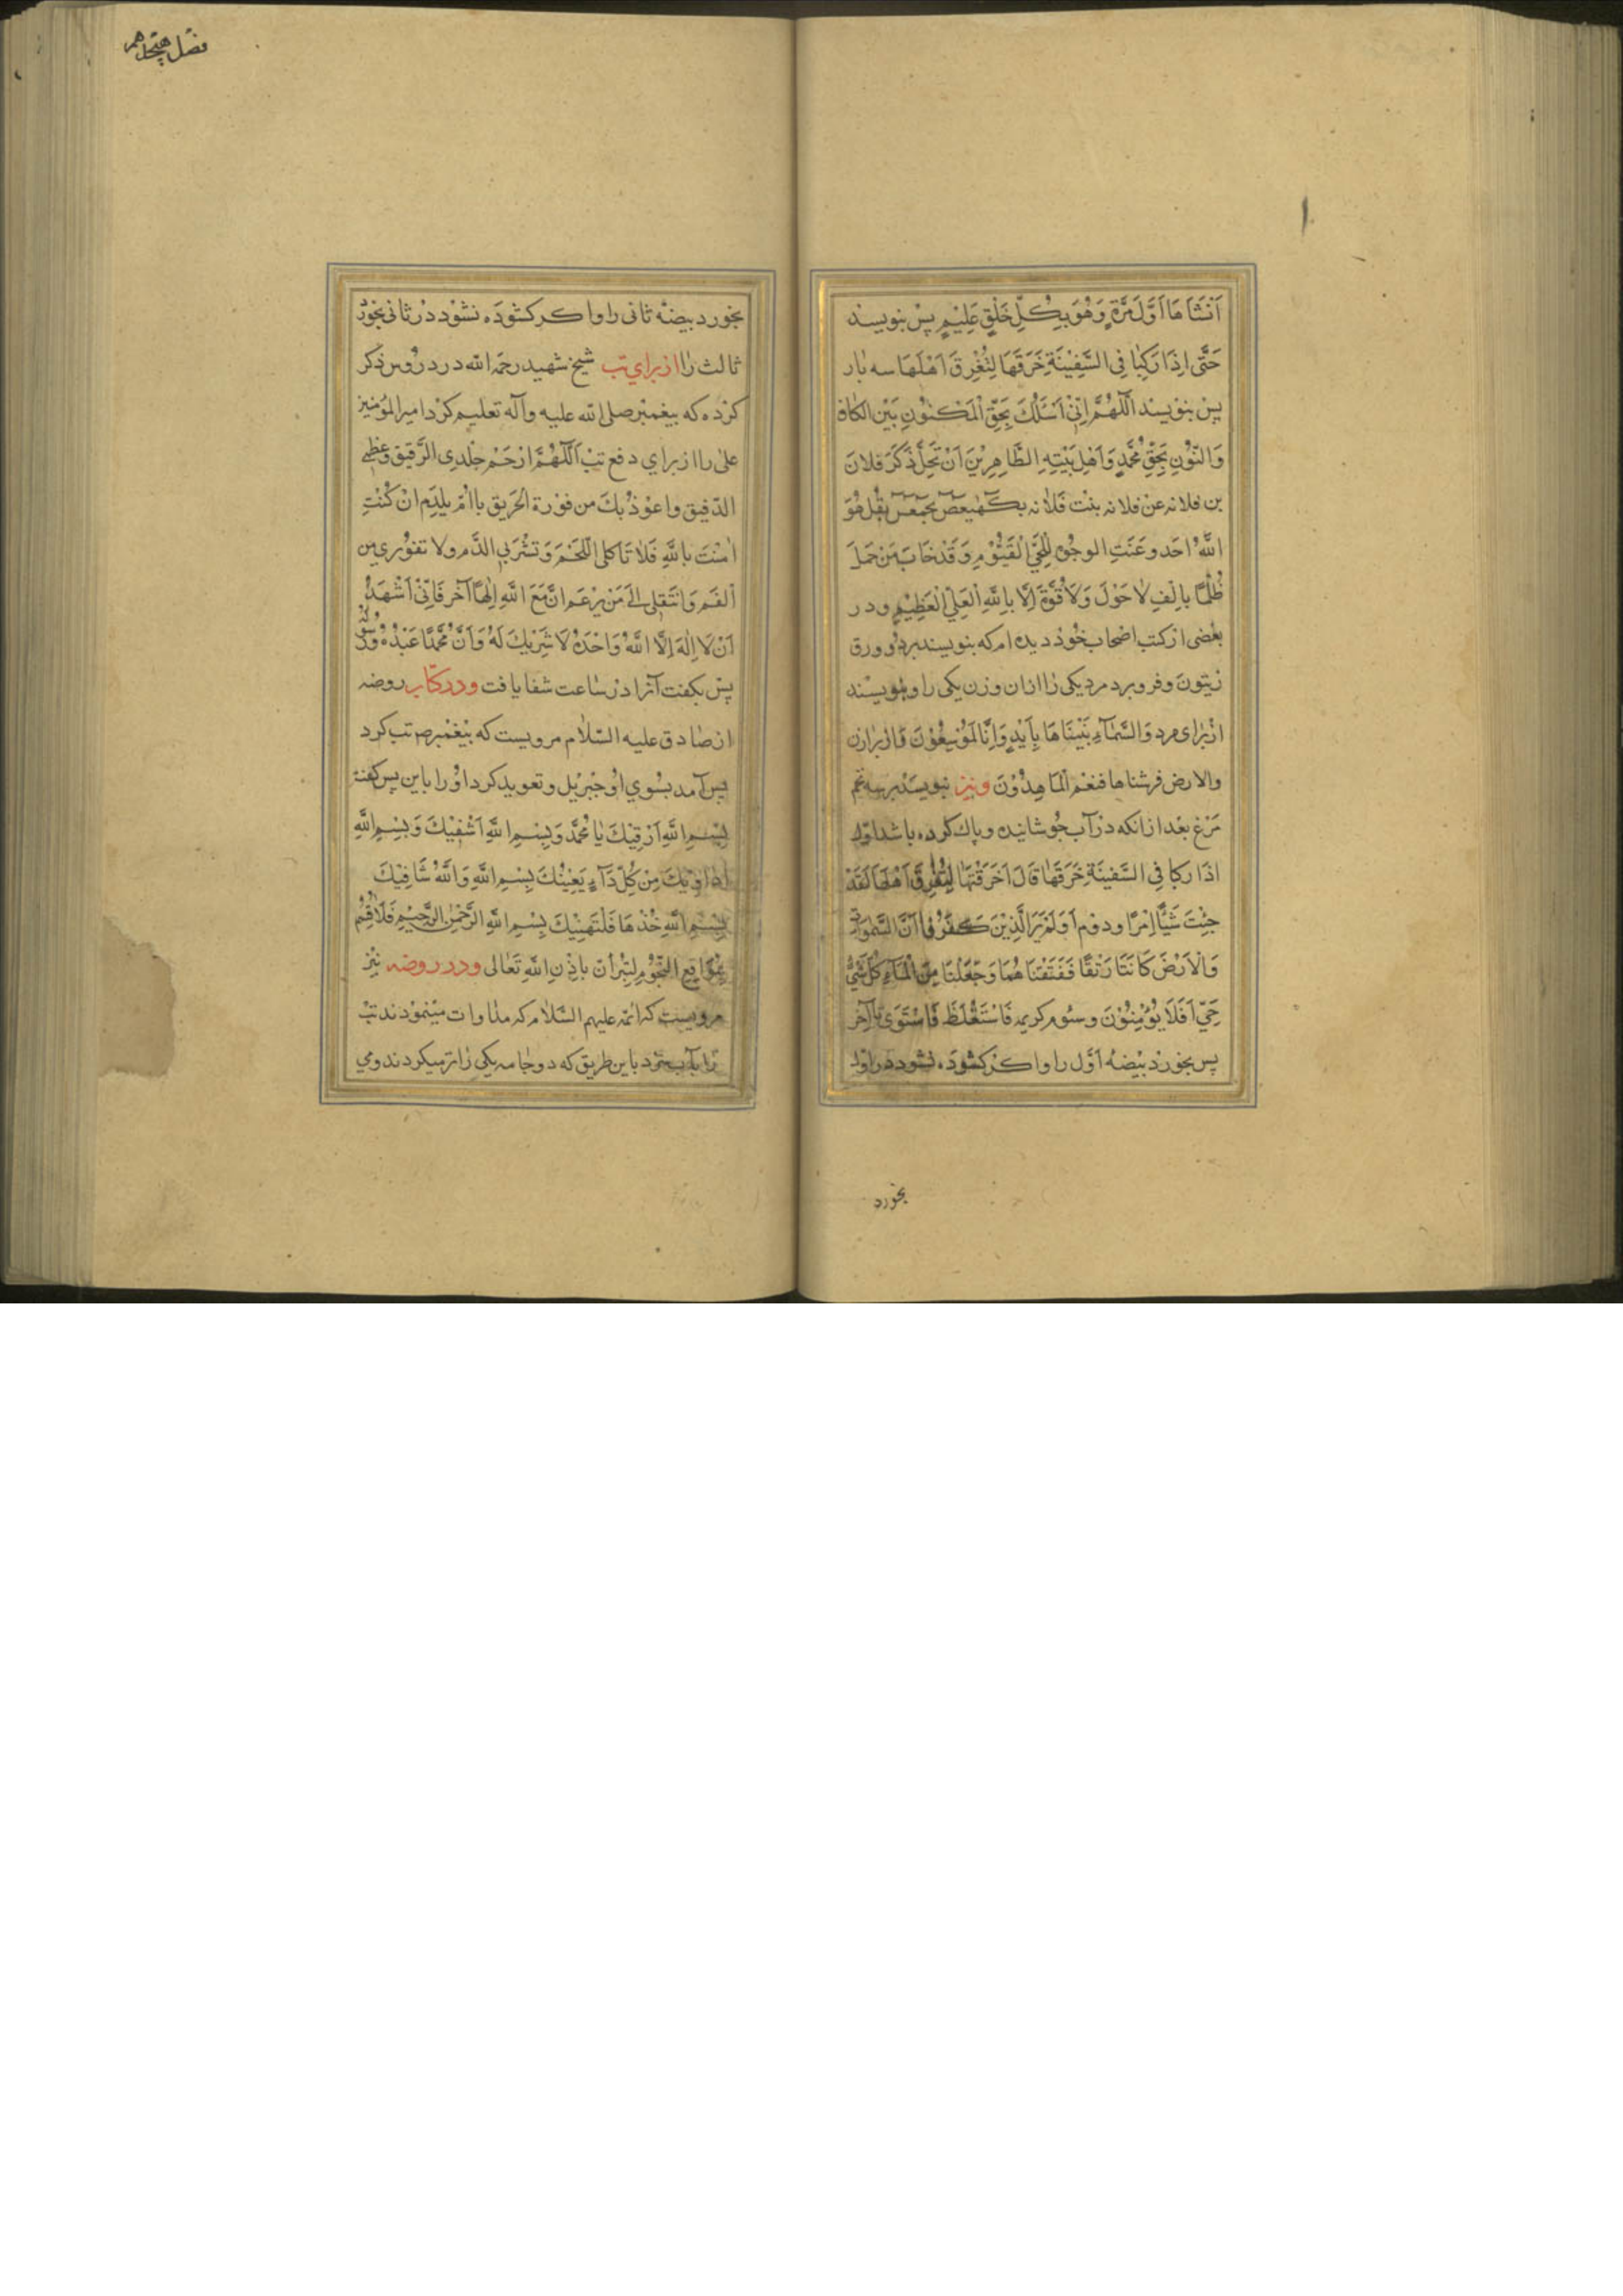 اَنْشَاَهَا اَوَّلَ مَرَّةٍ وَهُوَ بِكُلِّ خَلْقٍ عَلِيْمٍ پس بنویسند
حَتّٰی اِذَا رَكِبَا فِی السَّفِيْنَةِ خَرَقَهَا لِتُغْرِقَ اَهْلَهَا سه بار
پس بنویسند اَللّٰهُمَّ اِنّیْ اَسْئَلُكَ بِحَقِّ الْمَكْنُوْنِ بَيْنَ الكاف
وَالنُّوْنِ بِحَقِّ مُحَمَّدٍ وَاَهْلِ بَيْتِهِ الطَّاهِرِيْنَ اَنْ تَحِلَّ ذَكَرَ فلانَ
بن فلانه عَنْ فلانه بنْت فَلَانه بكٓهٰيٰعٓصٓ بحٓمٓعٓسٓقٓ بقُل هُوَ
اللّٰهُ اَحَد وعَنَتِ الوجُوْهُ لِلْحَيِّ الْقَيُّوْمِ وَقَدْ خَابَ مَنْ حَمَلَ
ظُلْمًا بِالْفِ لَا حَوْلَ وَلَا قُوَّةَ اِلَّا بِاللّٰهِ الْعَلِیِّ الْعَظِيْمِ و در
بعْضی از کتب اصْحاب خُوْد دیده ام که بنویسند بر دو ورق
زیتون و فرو برد مرد یکی را ازان وزن یکی را و بنویسند
از برای مرد وَالسَّمَآءِ بَنَيْنَاهَا بِاَيْدٍ وَاِنَّا لَمُوْسِعُوْنَ و از برای زن
والارض فرشناها فنعْم الْمَاهِدُوْنَ ونیز بنویسند بر سه تخم
مَرْغ بعْد از انکه در آب جوشانیده و پاك کرده باشد اول
اذَا رَكبا فِی السَّفينَةِ خَرَقَهَا قَالَ اَخَرَقْتَهَا لِتُغْرِقَ اَهْلَهَا لَقَدْ
جِئْتَ شَيْئًا اِمْرًا و دوم اَوَلَمْ يَرَ الَّذِيْنَ كَفَرُوْا اَنَّ السَّمٰوَاتِ
وَالْاَرْضَ كَانَتَا رَتْقًا فَفَتَقْنَاهُمَا وَجَعَلْنَا مِنَ الْمَآءِ كُلَّ شَیْءٍ
حَيٍّ اَفَلَا يُؤْمِنُوْنَ و سوم کریمه فَاسْتَغْلَظَ فَاسْتَوَی تا آخر
پس بخورد بیضهٔ اَوَّل را و اکر کشوده نشود در اول
بخورد
فصل هیجدهم
بخورد بیضهٔ ثانی را و اکر کشوده نشود در ثانی بخورد
ثالث را از برای تب شیخ شهید رحمه الله در دروس ذکر
کرده که پیغمبر صلی الله علیه وآله تعلیم کرد امیر المؤمنین
علی را از برای دفع تب اَللّٰهُمَّ ارْحَمْ جِلْدِی الرَّقيق وعَظْمِي
الدَّقيق واعُوْذُ بكَ من فوْرة الحَريق يا اُمّ مِلْدَم انْ كُنْتِ
اٰمَنْتَ باللّٰهِ فَلَا تَاكلی اللَّحَمَ وَتشْرَبی الدَّم ولا تفوْری من
الْفَم وَانتَقِلی الیٰ مَنْ يزعَم انَّ مَعَ اللّٰهِ اِلٰهًا آخر فَاِنِّیْ اَشْهَدُ
اَنْ لَا اِلٰهَ اِلَّا اللّٰهُ وَاحْدَهُ لَا شَرِيْكَ لَهُ وَاَنَّ مُحَمَّدًا عَبْدُهُ وَرَسُوْلُهُ
پس بکفت آنرا در ساعت شفا یافت ودر کتاب روضه
از صادق علیه السّلام مرویست که پیغمبر ص تب کرد
پس آمد بسوی او جبرئیل و تعوید کرد او را باین پس کفت
بِسْمِ اللّٰهِ اَرْقِيْكَ يَا مُحَمَّد وَبِسْمِ اللّٰهِ اَشْفِيْكَ وَبِسْمِ اللّٰهِ
اُدَاوِيْكَ مِنْ كُلِّ دَآءٍ يَعْنِيْكَ بِسْمِ اللّٰهِ وَاللّٰهُ شَافِيْكَ
بِسْمِ اللّٰهِ خُذْهَا فَلْتَهْنِيْكَ بِسْمِ اللّٰهِ الرَّحْمٰنِ الرَّحِيْمِ فَلَا اُقْسِمُ
بِمَوَاقِعِ النُّجُوْمِ لَتَبْرَاَنَّ بِاِذْنِ اللّٰهِ تَعَالٰی ودر روضه نیز
مرویست که ائمه علیهم السّلام که مداوات مینمودند تب
را بآب سرد باین طریق که دو جامه یکی را تر میکردند ومی